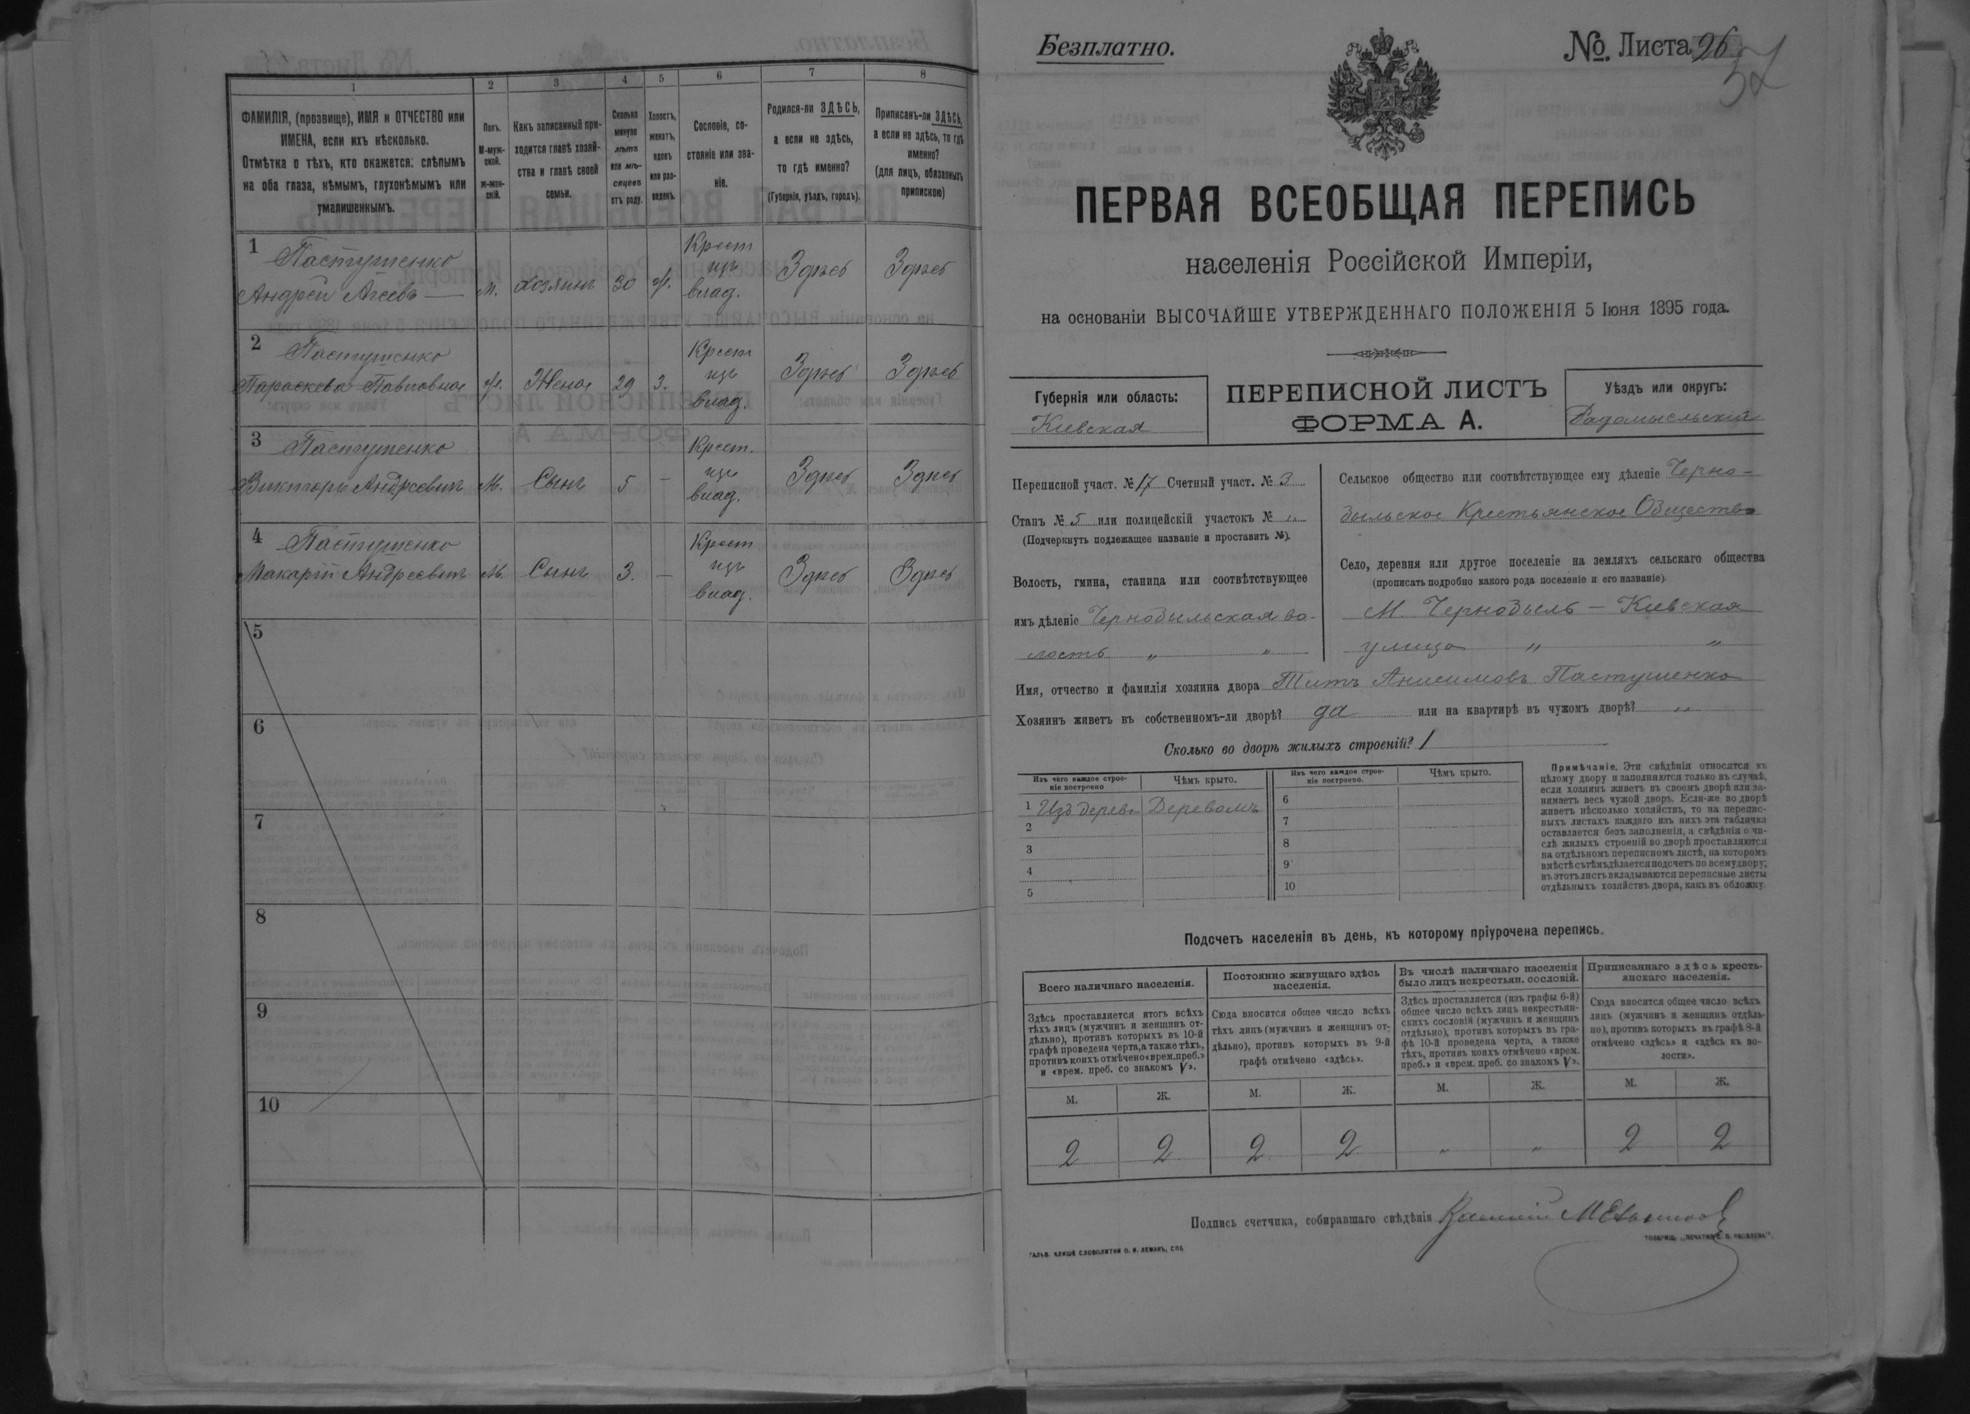 1
2
3
4
5
6
7
8
ФАМИЛІЯ, (прозвище), ИМЯ и ОТЧЕСТВО или
ИМЕНА, если ихъ нѣсколько.
Отмѣтка о тѣхъ, кто окажется: слѣпымъ
на оба глаза, нѣмымъ, глухонѣмымъ или
умалишеннымъ.
Полъ.
М-муж-
ской.
ж-жен-
скій.
Какъ записанный при-
ходится главѣ хозяй-
ства и главѣ своей
семьи.
Сколько
минуло
лѣтъ
или мѣ-
сяцевъ
отъ роду.
Холостъ,
женатъ,
вдовъ
или раз-
веденъ.
Сословіе, со-
стояніе или зва-
ніе.
Родился-ли ЗДѢСЬ,
а если не здѣсь,
то гдѣ именно?
(Губернія, уѣздъ, городъ).
Приписанъ-ли ЗДѢСЬ,
а если не здѣсь, то гдѣ
именно?
(для лицъ, обязанныхъ
припискою)
1 Пастушенко
Андрей Агеевъ — м. хозяинъ 30 ж. Крест изъ влад. Здѣсь Здѣсь
2 Пастушенко
Параскева Павловна ж. Жена 29 з. Крест изъ влад. Здѣсь Здѣсь
3 Пастушенко
Викторъ Андреевичъ м. Сынъ 5 — Крест. изъ влад. Здѣсь Здѣсь
4 Пастушенко
Макарій Андреевичъ м. Сынъ 3. — Крест изъ влад. Здѣсь Здѣсь
5
6
7
8
9
10
Безплатно.
№ Листа 26
37
ПЕРВАЯ ВСЕОБЩАЯ ПЕРЕПИСЬ
населенія Россійской Имперіи,
на основаніи ВЫСОЧАЙШЕ УТВЕРЖДЕННАГО ПОЛОЖЕНІЯ 5 Іюня 1895 года.
Губернія или область:
Кіевская
ПЕРЕПИСНОЙ ЛИСТЪ
ФОРМА А.
Уѣздъ или округъ:
Радомысльскій
Переписной участ. № 17 Счетный участ. № 3
Станъ № 5 или полицейскій участокъ № „
(Подчеркнуть подлежащее названіе и проставить №).
Волость, гмина, станица или соотвѣтствующее
имъ дѣленіе Чернобыльская во-
лость „ „
Сельское общество или соотвѣтствующее ему дѣленіе Черно-
быльское Крестьянское Общество
Село, деревня или другое поселеніе на земляхъ сельскаго общества
(прописать подробно какого рода поселеніе и его названіе)
М. Чернобыль — Кіевская
улица „ „
Имя, отчество и фамилія хозяина двора Титъ Анисимовъ Пастушенко
Хозяинъ живетъ въ собственномъ-ли дворѣ? да или на квартирѣ въ чужомъ дворѣ? „
Сколько во дворѣ жилыхъ строеній? 1
Изъ чего каждое строе-
ніе построено
Чѣмъ крыто.
Изъ чего каждое строе-
ніе построено.
Чѣмъ крыто.
1 Изъ дерева Деревомъ
2
3
4
5
6
7
8
9
10
Примѣчаніе. Эти свѣдѣнія относятся къ
цѣлому двору и заполняются только въ случаѣ,
если хозяинъ живетъ въ своемъ дворѣ или за-
нимаетъ весь чужой дворъ. Если-же во дворѣ
живетъ нѣсколько хозяйствъ, то на перепис-
ныхъ листахъ каждаго изъ нихъ эта табличка
оставляется безъ заполненія, а свѣдѣнія о чи-
слѣ жилыхъ строеній во дворѣ проставляются
на отдѣльномъ переписномъ листѣ, на которомъ
вмѣстѣ съ тѣмъ дѣлается подсчетъ по всему двору;
въ этотъ листъ вкладываются переписные листы
отдѣльныхъ хозяйствъ двора, какъ въ обложку.
Подсчетъ населенія въ день, къ которому пріурочена перепись.
Всего наличнаго населенія.
Постоянно живущаго здѣсь
населенія.
Въ числѣ наличнаго населенія
было лицъ некрестьян. сословій.
Приписаннаго здѣсь кресть-
янскаго населенія.
Здѣсь проставляется итогъ всѣхъ
тѣхъ лицъ (мужчинъ и женщинъ от-
дѣльно), противъ которыхъ въ 10-й
графѣ проведена черта, а также тѣхъ,
противъ коихъ отмѣчено «врем. преб.»
и «врем. преб. со знакомъ V».
Сюда вносится общее число всѣхъ
тѣхъ лицъ (мужчинъ и женщинъ от-
дѣльно), противъ которыхъ въ 9-й
графѣ отмѣчено «здѣсь».
Здѣсь проставляется (изъ графы 6-й)
общее число всѣхъ лицъ некрестьян-
скихъ сословій (мужчинъ и женщинъ
отдѣльно), противъ которыхъ въ гра-
фѣ 10-й проведена черта, а также
тѣхъ, противъ коихъ отмѣчено «врем.
преб.» и «врем. преб. со знакомъ V».
Сюда вносится общее число всѣхъ
лицъ (мужчинъ и женщинъ отдѣль-
но), противъ которыхъ въ графѣ 8-й
отмѣчено «здѣсь» и «здѣсь въ во-
лости».
М. Ж. М. Ж. М. Ж. М. Ж.
2 2 2 2 „ „ 2 2
Подпись счетчика, собиравшаго свѣдѣнія
ГАЛЬВ. КЛИШЕ СЛОВОЛИТНИ О. И. ЛЕМАНЪ, СПБ